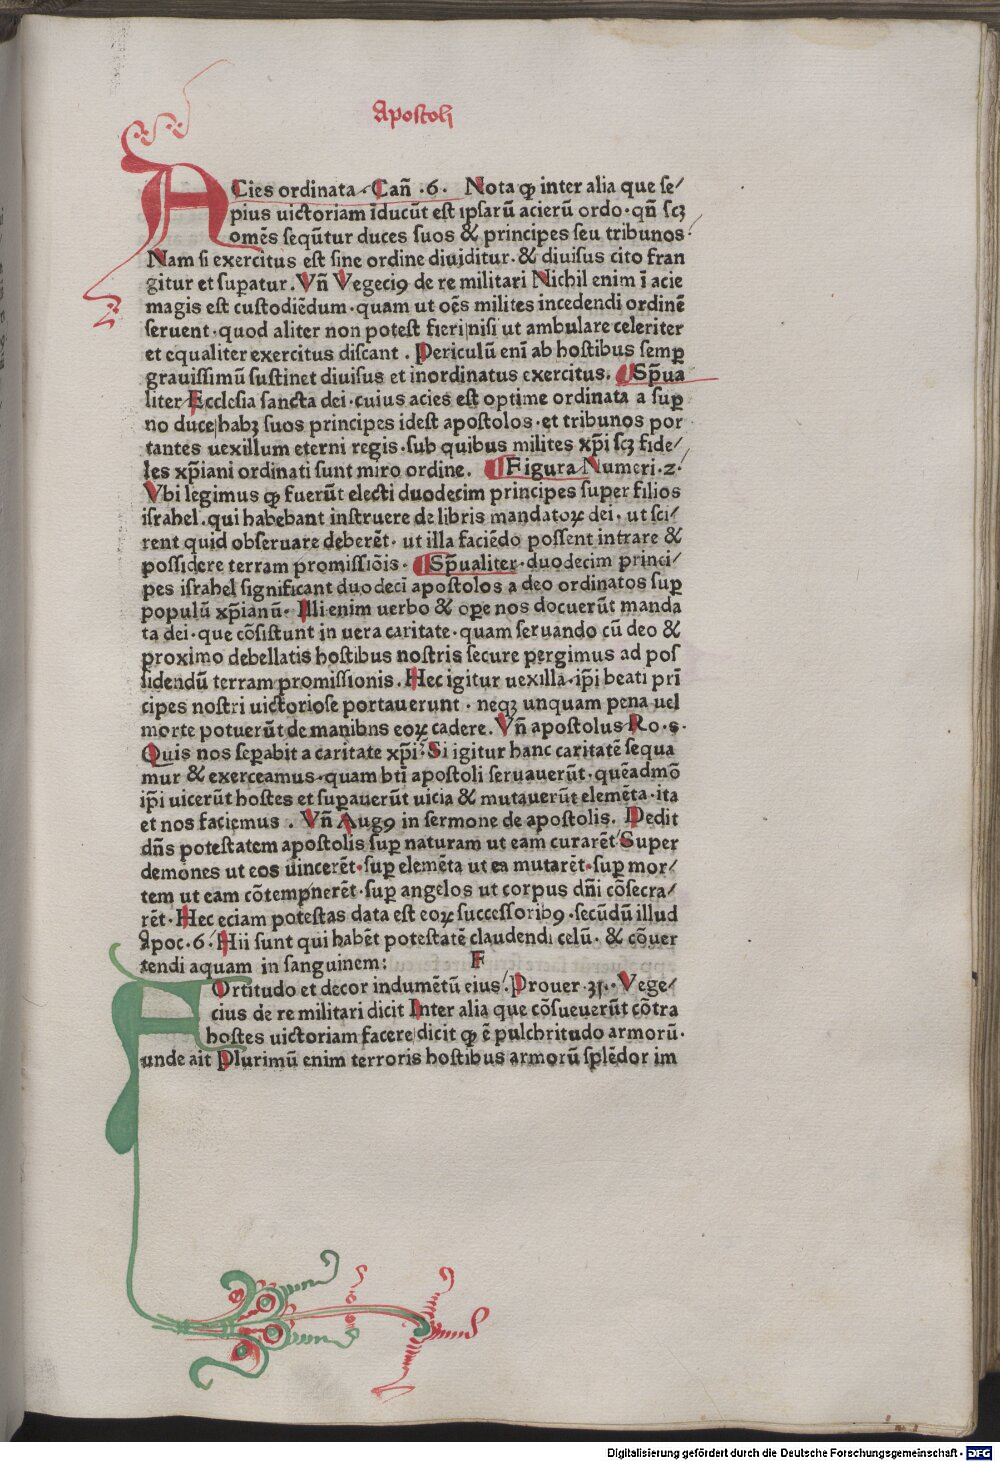 Apostoli
ACies ordinata. Cañ .6. Nota ꝙ inter alia que se/
pius uictoriam īducūt est ipsarū acierū ordo. qñ scꝫ
omēs seqūtur duces suos & principes seu tribunos.
Nam si exercitus est sine ordine diuiditur. & diuisus cito fran
gitur et suꝑatur. Vñ Vegeciꝰ de re militari Nichil enim ī acie
magis est custodiēdum. quam ut oēs milites incedendi ordinē
seruent. quod aliter non potest fieri nisi ut ambulare celeriter
et equaliter exercitus discant. Periculū enī ab hostibus semꝑ
grauissimū sustinet diuisus et inordinatus exercitus. Sp̄ua
liter Ecclesia sancta dei. cuius acies est optime ordinata a suꝑ
no duce habꝫ suos principes idest apostolos. et tribunos por
tantes uexillum eterni regis. sub quibus milites xp̄i scꝫ fide/
les xp̄iani ordinati sunt miro ordine. Figura Numeri .2.
Vbi legimus ꝙ fuerūt electi duodecim principes super filios
israhel. qui habebant instruere de libris mandatoꝝ dei. ut sci/
rent quid obseruare deberēt. ut illa faciēdo possent intrare &
possidere terram promissiōis. Sp̄ualiter. duodecim princi/
pes israhel significant duodecī apostolos a deo ordinatos suꝑ
populū xp̄ianū. Illi enim uerbo & oꝑe nos docuerūt manda
ta dei. que cōsistunt in uera caritate. quam seruando cū deo &
proximo debellatis hostibus nostris secure pergimus ad pos
sidendū terram promissionis. Hec igitur uexilla. ip̄i beati prī
cipes nostri uictoriose portauerunt. neqꝫ unquam pena uel
morte potuerūt de manibns eoꝝ cadere. Vñ apostolus Ro .s.
Quis nos seꝑabit a caritate xp̄i? Si igitur hanc caritatē sequa
mur & exerceamus. quam btī apostoli seruauerūt. quēadmō
ip̄i uicerūt hostes et suꝑauerūt uicia & mutauerūt elemēta. ita
et nos faciemus. Vñ Augꝰ in sermone de apostolis. Dedit
dñs potestatem apostolis suꝑ naturam ut eam curarēt Super
demones ut eos uincerēt. suꝑ elemēta ut ea mutarēt. suꝑ mor/
tem ut eam cōtempnerēt. suꝑ angelos ut corpus dñi cōsecra/
rēt. Hec eciam potestas data est eoꝝ successoribꝰ. secūdū illud
Apoc .6. Hii sunt qui habēt potestatē claudendi celū. & cōuer
tendi aquam in sanguinem: F
FOrtitudo et decor indumētū eius. Prouer .3ı. Vege/
cius de re militari dicit Inter alia que cōsueuerūt cōtra
hostes uictoriam facere dicit ꝙ ē pulchritudo armorū.
unde ait Plurimū enim terroris hostibus armorū splēdor im
Digitalisierung gefördert durch die Deutsche Forschungsgemeinschaft - DFG